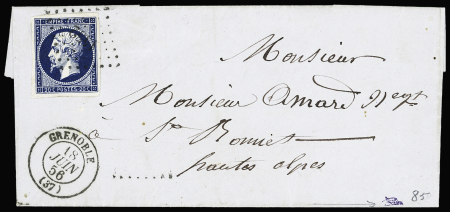 EMPIRE FRANC.
20C POSTES 20C
Monsieur
Monsieur Amard Négt
à
St Bonnet
hautes alpes
GRENOBLE
18
JUIN
56
(37)
85